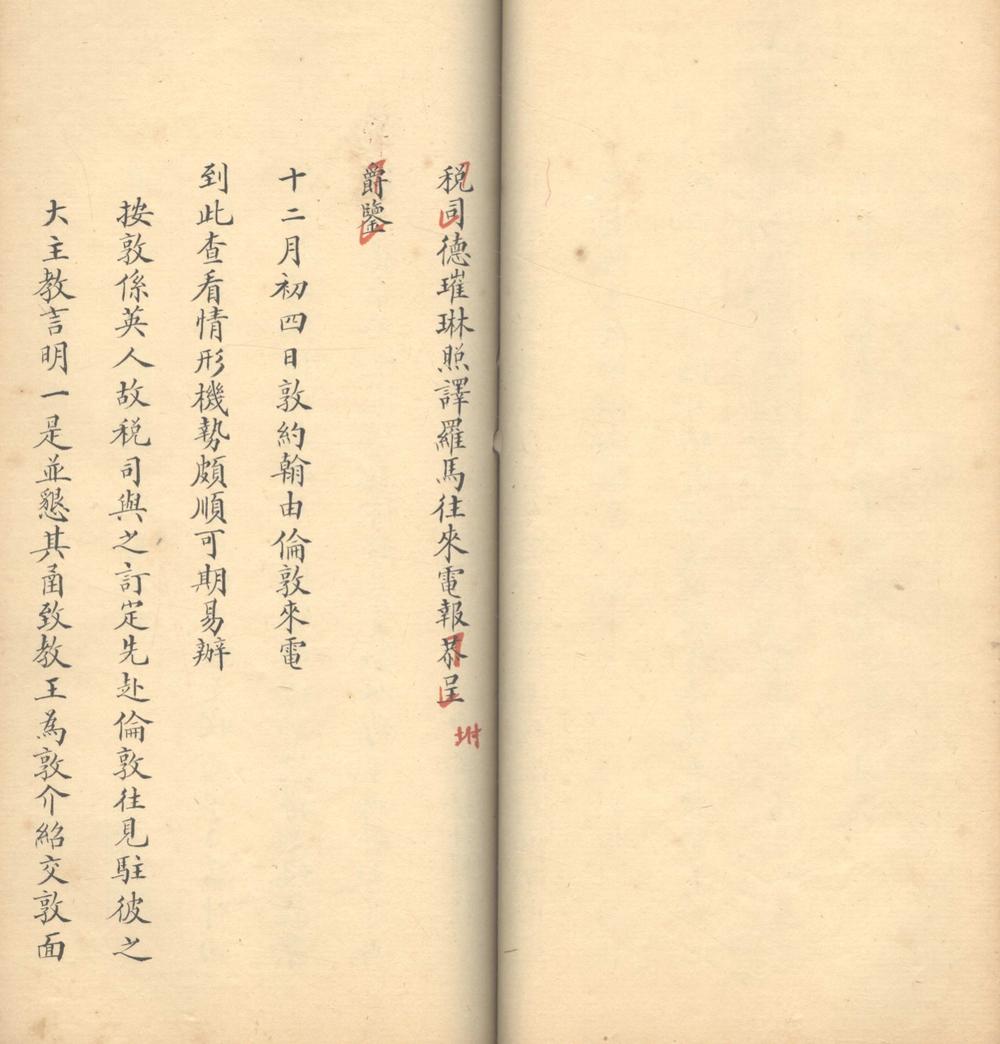 税司德璀琳照譯羅馬往來電報恭呈
坿
爵鑒
十二月初四日敦約翰由倫敦來電
到此查看情形機勢頗順可期易辦
按敦係英人故税司與之訂定先赴倫敦往見駐彼之
大主教言明一是並懇其圅致教王為敦介紹交敦面